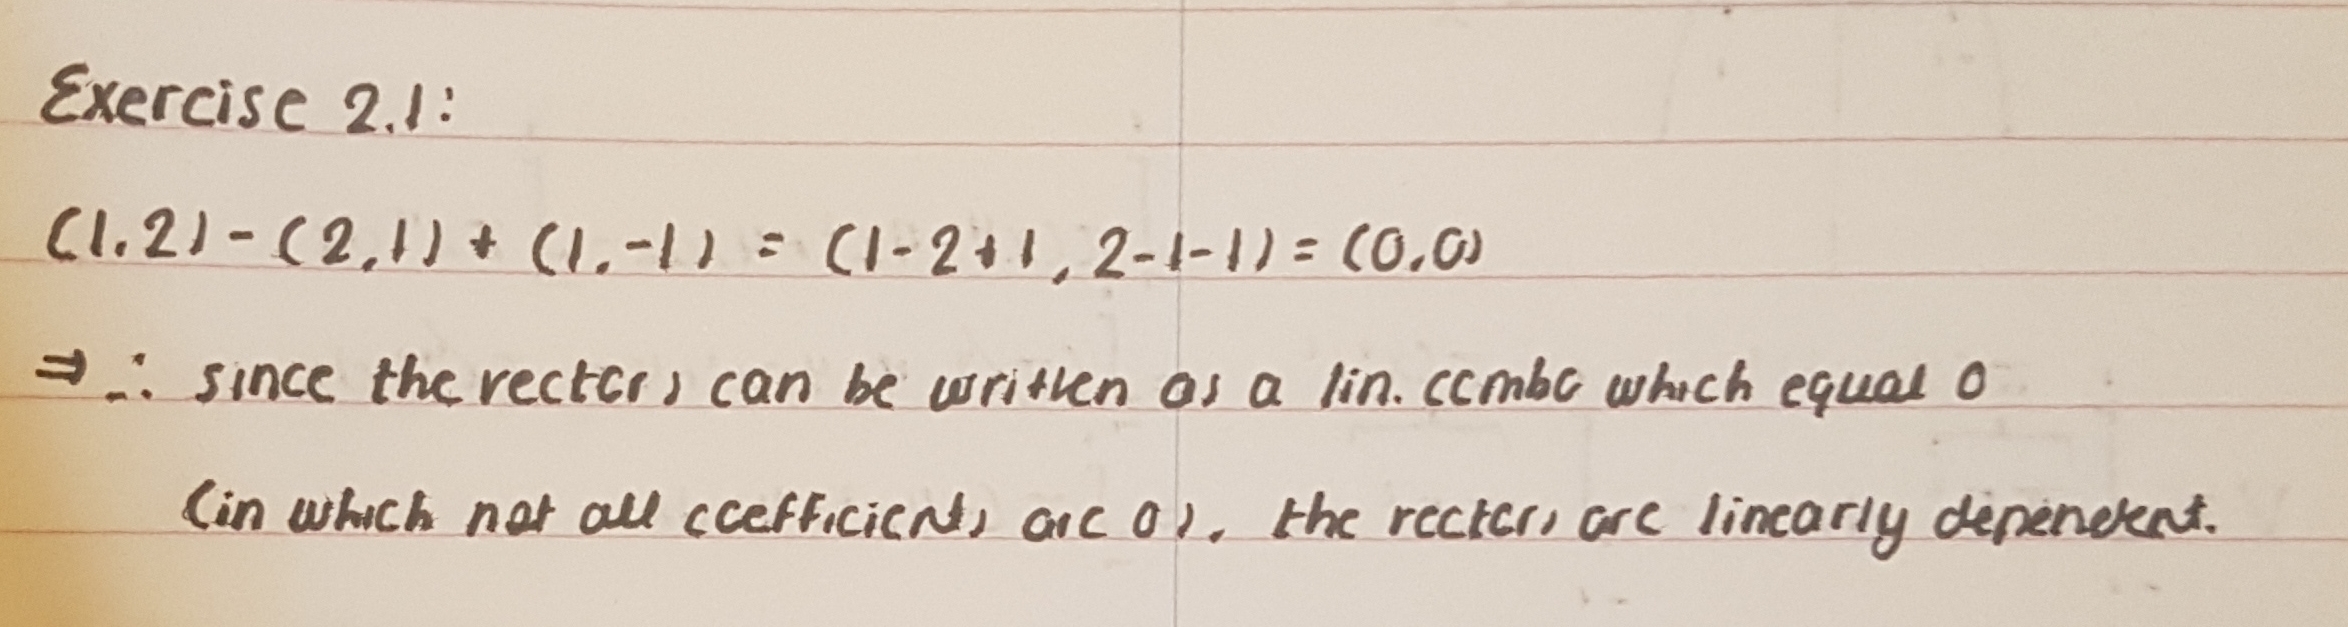 Exercise 2.1:
(1,2) - (2,1) + (1,-1) = (1-2+1, 2-1-1) = (0,0)
⇒ ∴ since the vectors can be written as a lin. combo which equal 0
(in which not all coefficients are 0), the vectors are linearly dependent.